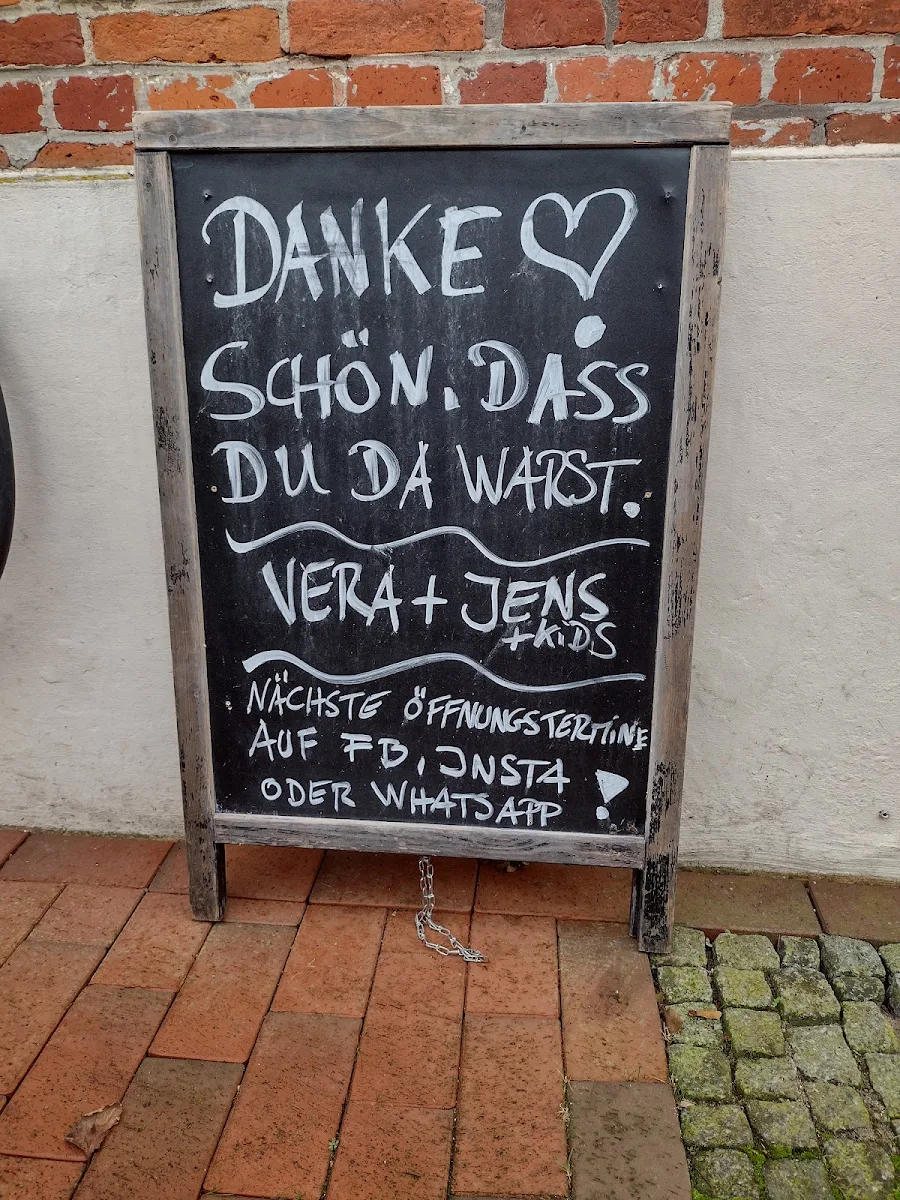 DANKE ♡
SCHÖN, DASS
DU DA WARST.
VERA + JENS
+ KiDS
NÄCHSTE ÖFFNUNGSTERMiNE
AUF FB, INSTA
ODER WHATSAPP !